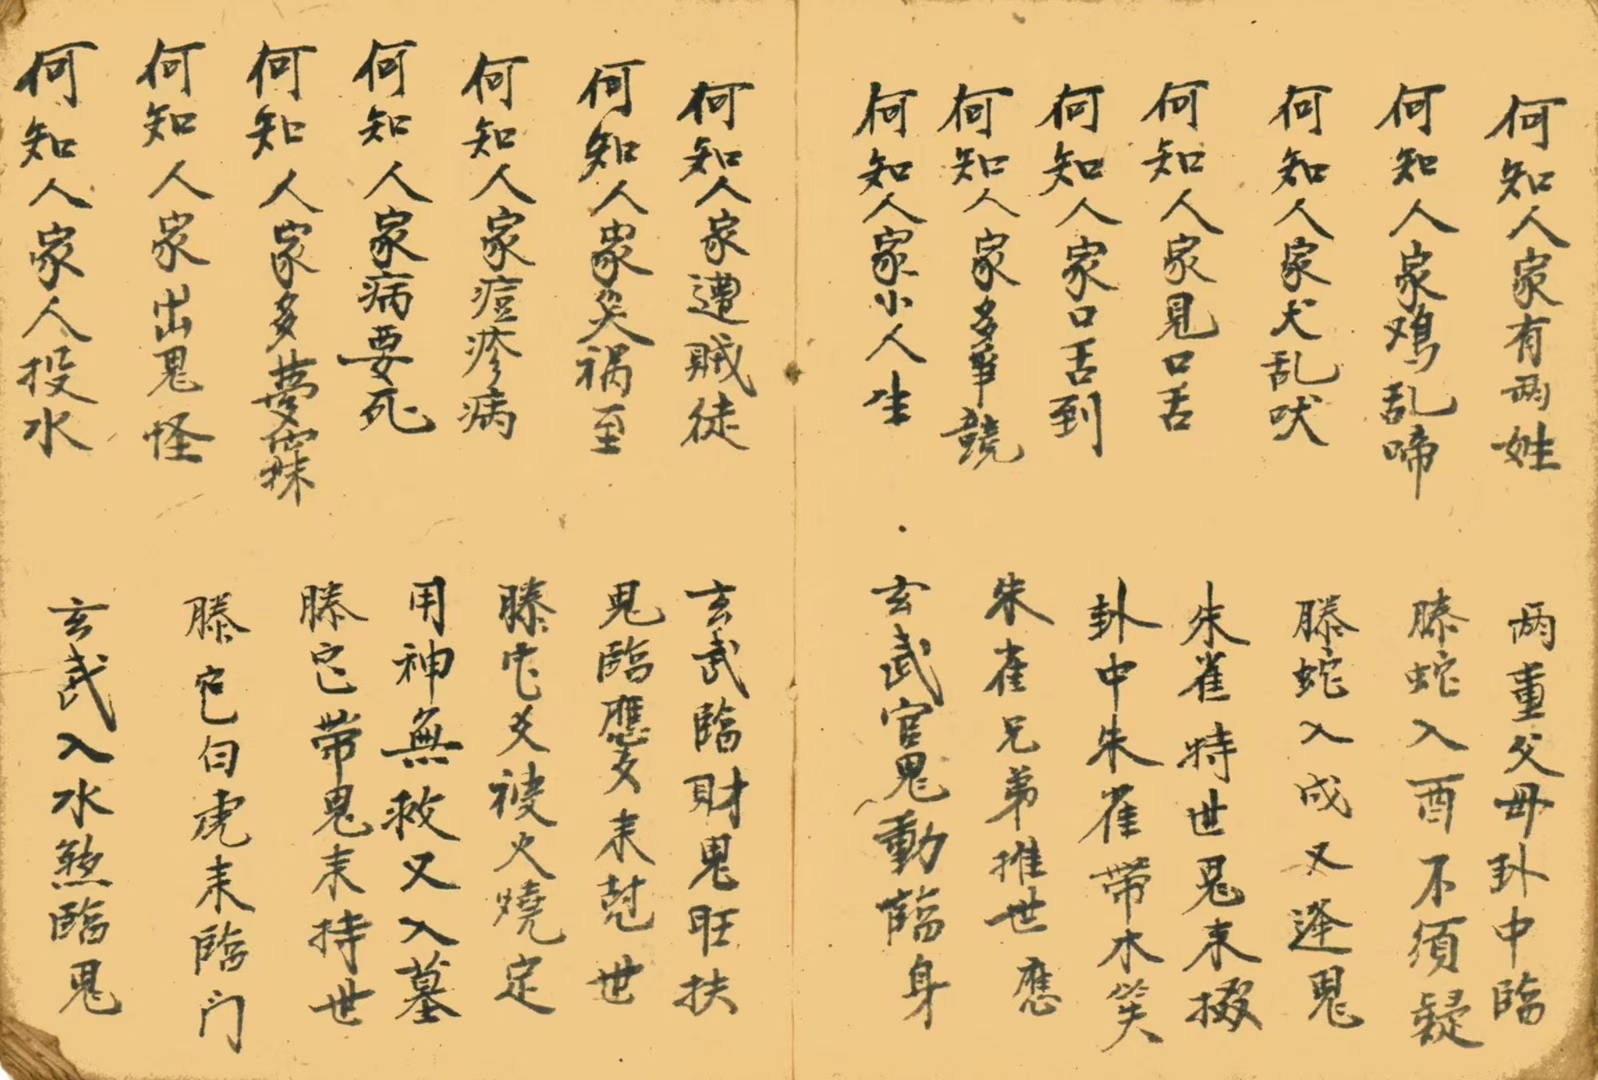 何知人家有两姓　两重父毋卦中臨
何知人家鸡乱啼　螣蛇入酉不須疑
何知人家犬乱吠　螣蛇入戌又逢鬼
何知人家見口舌　朱雀持世鬼来掇
何知人家口舌到　卦中朱雀带木笑
何知人家多爭競　朱雀兄弟推世應
何知人家小人生　玄武官鬼動臨身
何知人家遭賊徒　玄武臨財鬼旺扶
何知人家災祸至　鬼臨應爻来尅世
何知人家痘疹病　螣它爻被火燒定
何知人家病要死　用神無救又入墓
何知人家多夢寐　螣它带鬼来持世
何知人家出鬼怪　螣它白虎来臨门
何知人家人投水　玄武入水煞臨鬼